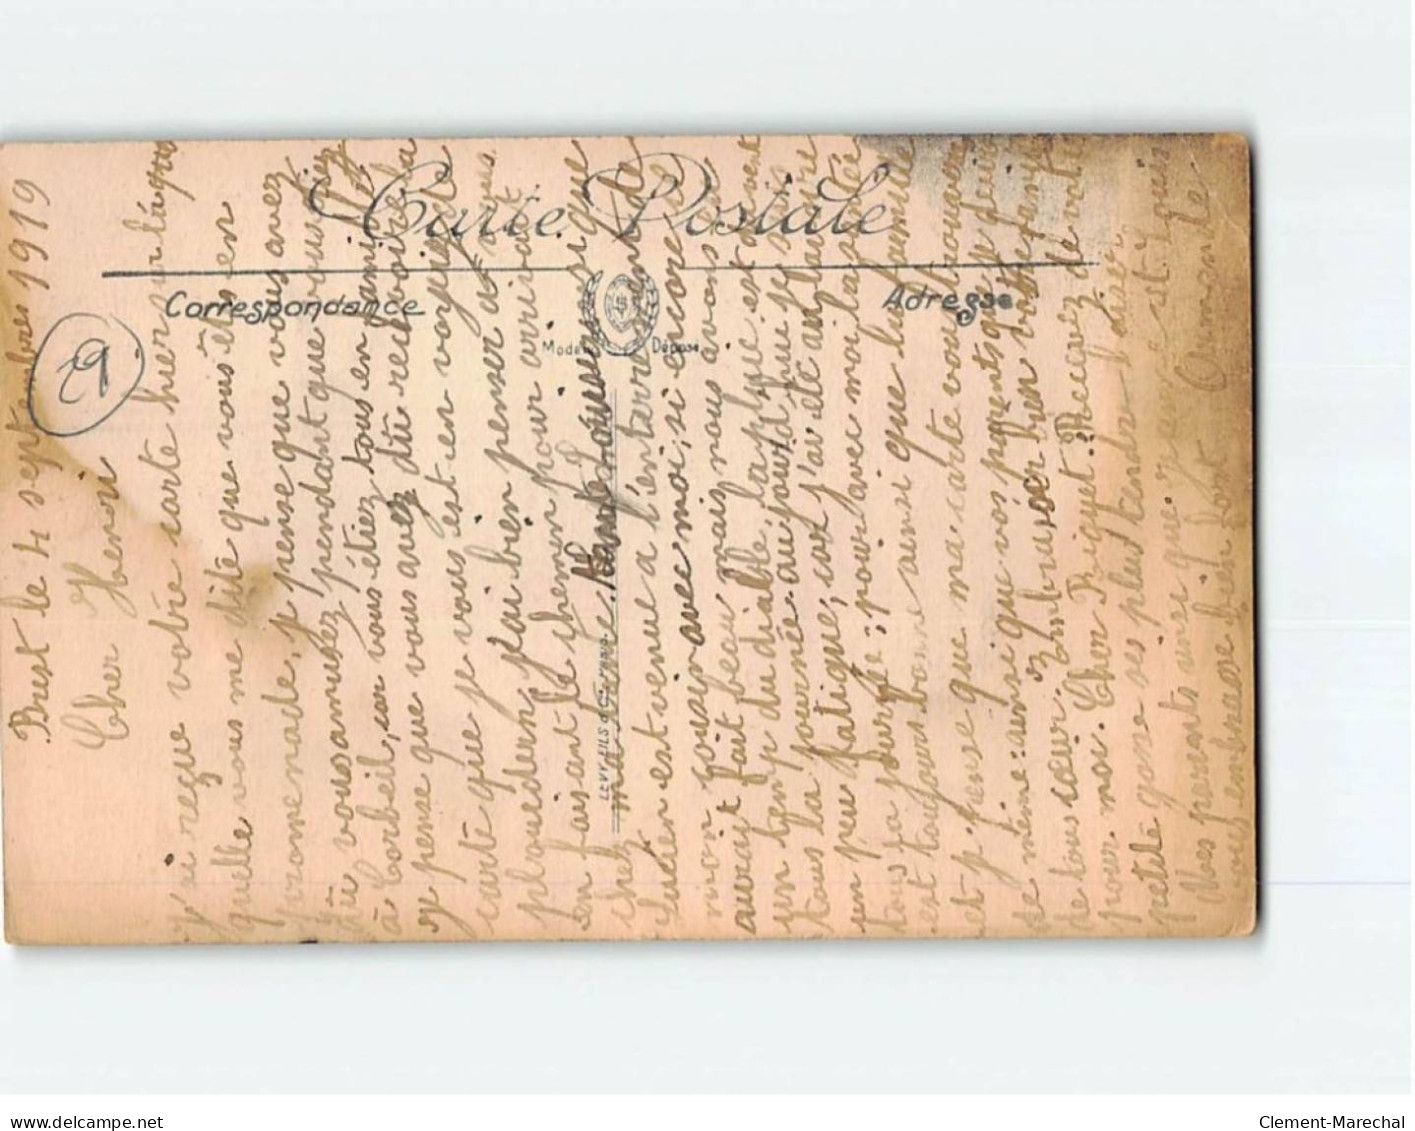 Carte Postale
Correspondance
Adresse
Modèle Déposé
LEVY FILS &
29
Brest le 4 septembres 1919
Cher Henri
J'ai reçue votre carte hier sur
quelle vous me dite que vous êtes en
promenade, je pense que vous avez
dû vous amusez pendant que vous
à Corbeil, car vous étiez tous en famille
Je pense que vous avez dû recevoir la
carte que je vous est envoyer de
plouédern, j'ai bien penser à vous
en faisant le chemin pour arrivait
chez ma tante
Lucien est venue a l'enterrement de
mon cousin avec moi, si encore il
aurait fait beau, mais nous avons eu
un temp du diable, la pluie est
tous la journée. aujourd'hui je suis
un peu fatigué, car j'ai été au
tous ta purgé: pour avec moi la santé
est toujours bonne ainsi que la famille
et je pense que ma carte vous trouvera
de même: ainsi que vos parents que je désire
de tous cœur. Embrasser bien votre
pour moi. Cher Riquet. Recevez de votre
petite gosse ses plus tendre baiser
Mes parents ainsi que et Louis
vous embrasse bien fort Armande
Clement-Marechal